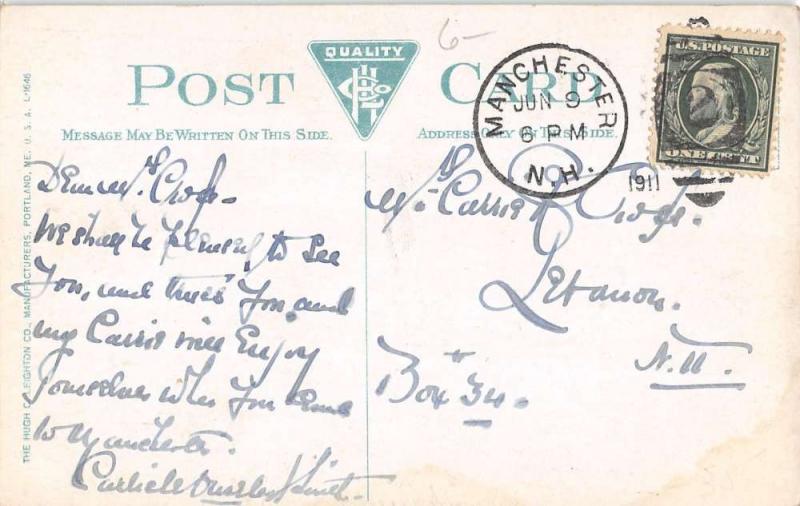 6-
QUALITY
POST CARD
MESSAGE MAY BE WRITTEN ON THIS SIDE.
ADDRESS ONLY ON THIS SIDE.
THE HUGH C. LEIGHTON CO., MANUFACTURERS, PORTLAND, ME. U. S. A. L-1646
MANCHESTER
JUN 9
6 PM
N.H.
1911
U.S. POSTAGE
ONE CENT
Dear Mrs.
We shall be pleased to see
You, and trust You, and
my Carrie will Enjoy
Yourselves when You come
to Manchester.
Carlisle
Mrs. Carrie
Lebanon.
N.H.
Box 34.